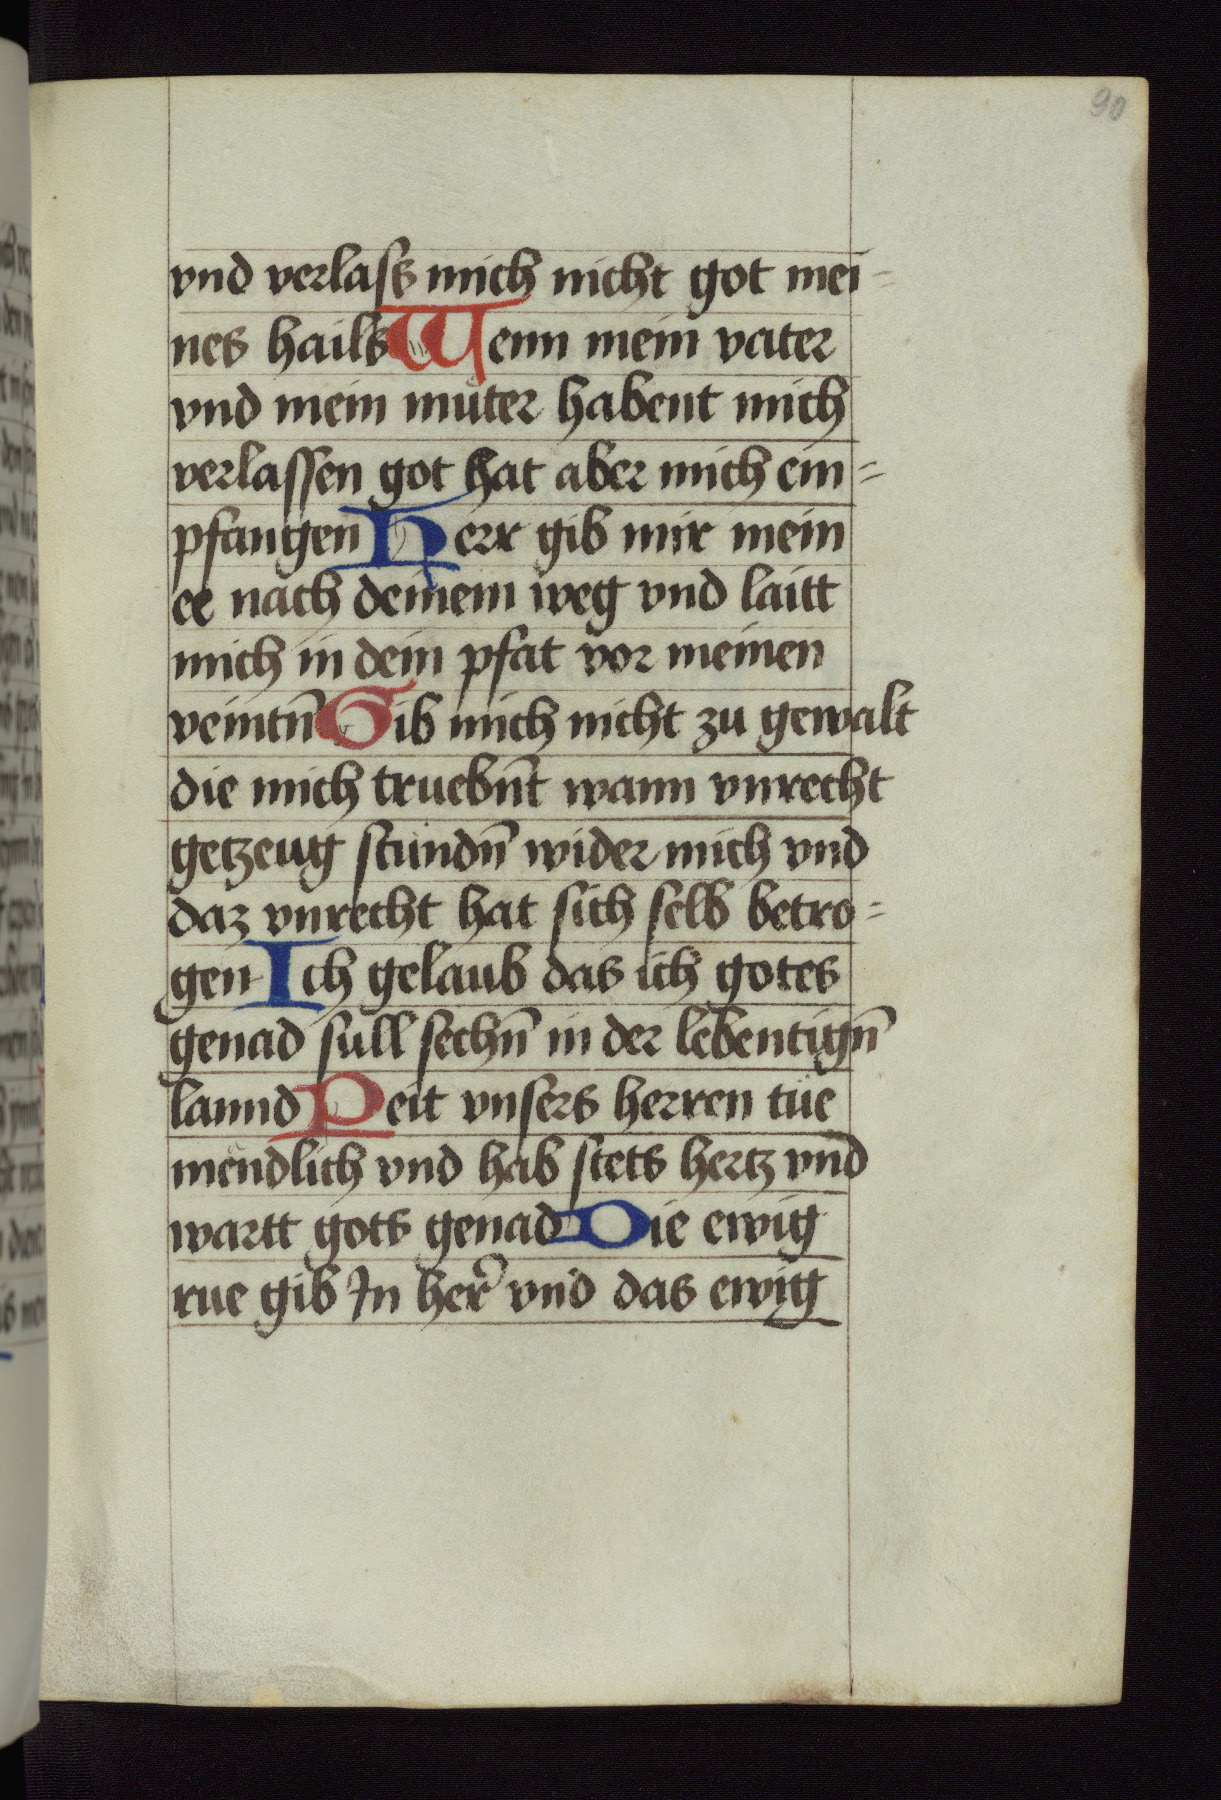 90
vnd verlass mich nicht got mei=
nes hails Wenn mein vater
vnd mein muter habent mich
verlassen got hat aber mich ein=
pfangen Herr gib mir mein
ee nach deinem weg vnd laitt
mich in dein pfat vor meinen
veintn̄ Gib mich nicht zu gewalt
die mich truebn̄t wann vnrecht
getzeug stundn̄ wider mich vnd
daz vnrecht hat sich selb betro=
gen Ich gelaub das ich gotes
genad sull sechn̄ in der lebentign̄
lannd Peit vnsers herren tue
mendlich vnd hab stets hertz vnd
wartt gots genad Die ewig
rue gib In her᷑ vnd das ewig